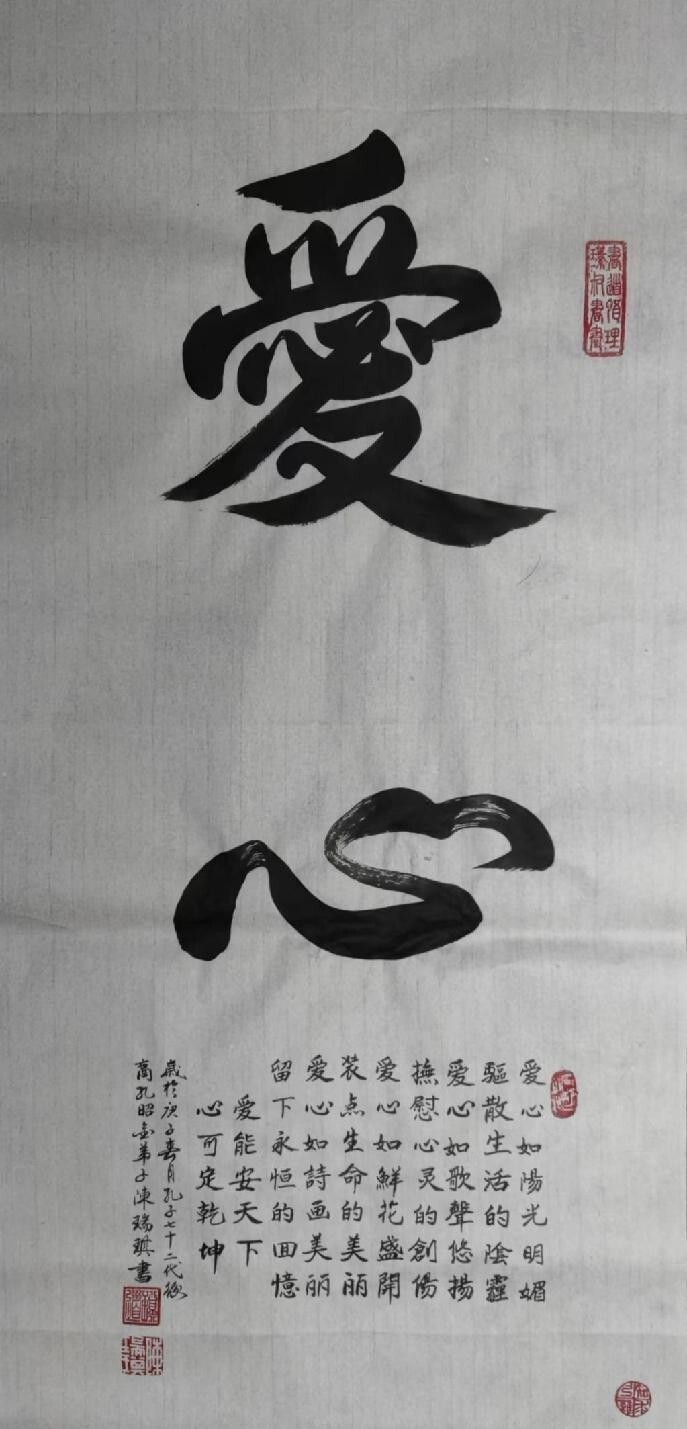 愛心
爱心如陽光明媚
驅散生活的陰霾
爱心如歌聲悠揚
撫慰心灵的創傷
爱心如鮮花盛開
装点生命的美丽
爱心如詩画美丽
留下永恒的回憶
爱能安天下
心可定乾坤
歲於庚子春月孔子七十二代後
裔孔昭金弟子陳瑞琪書